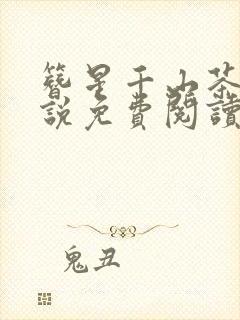 簪星千山茶
說免費閱讀
鬼丑